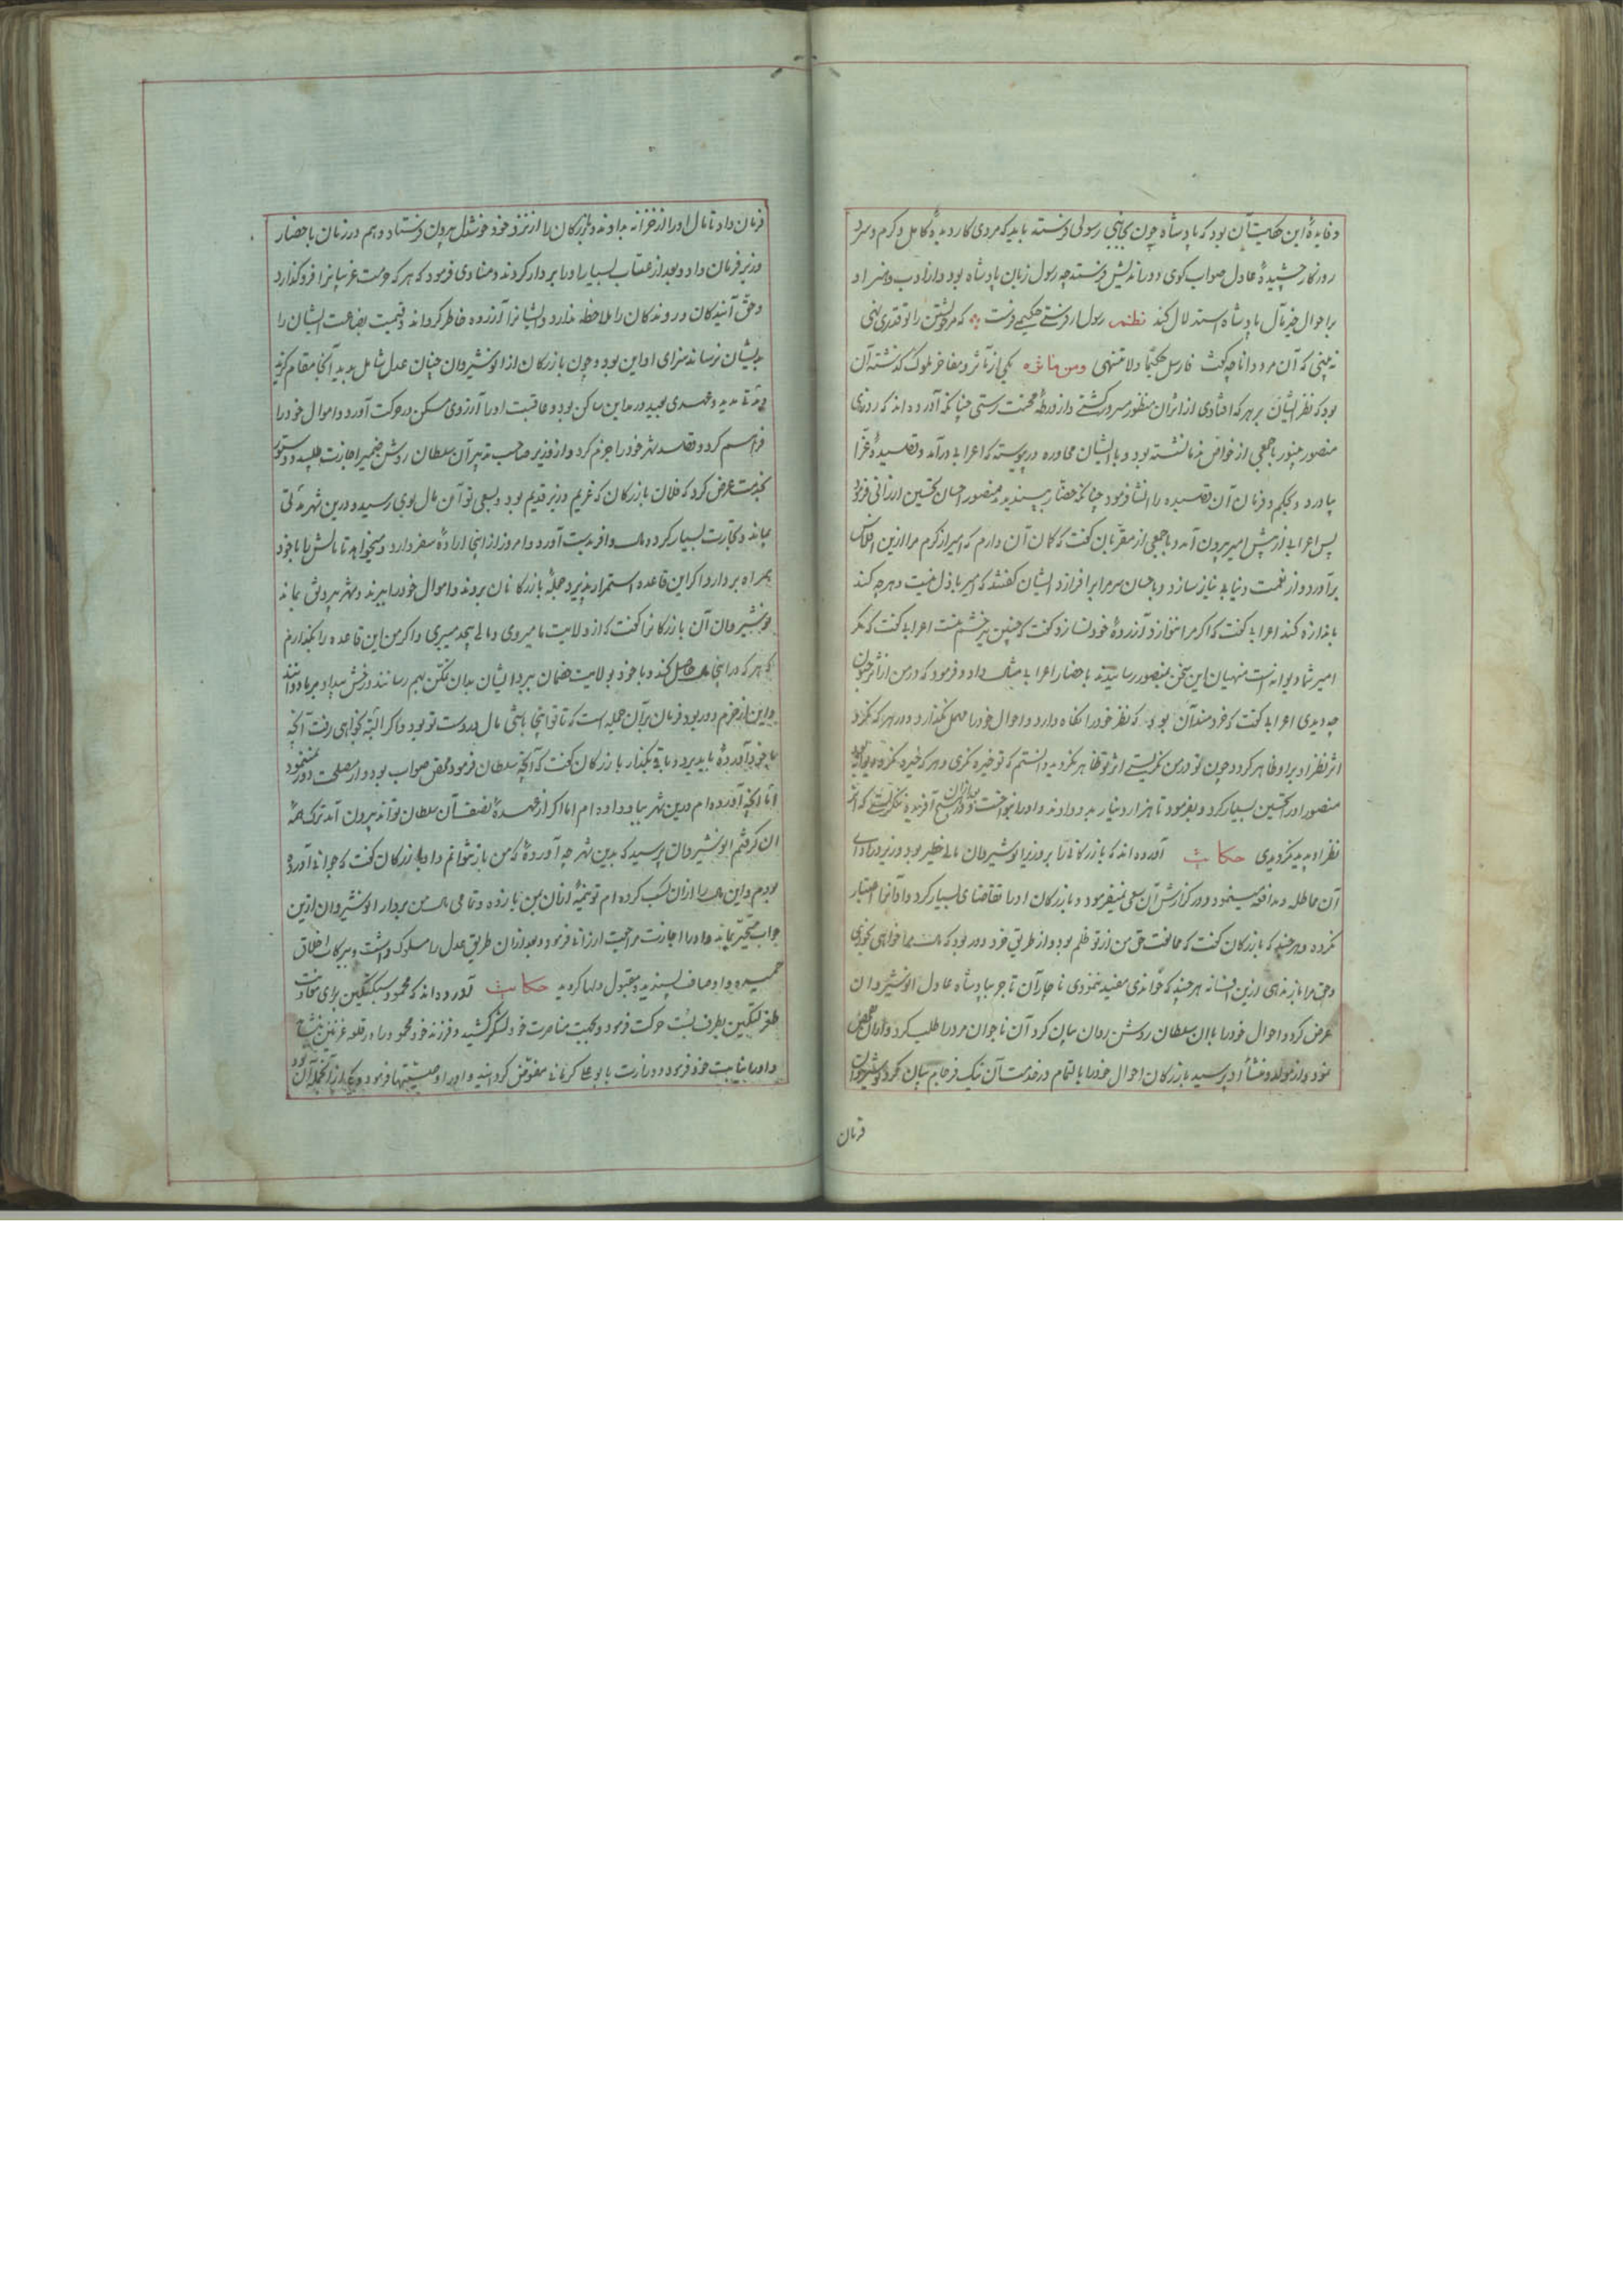 و فایدهٔ این حکایت آن بود که پادشاه چون بجانبی رسولی فرستد باید که مردی کاردیدهٔ کامل و کرم و سرد
روزکار چشیدهٔ عادل صواب کوی دوراندیش فرستد چه رسول زبان پادشاه بود و از ادب و خرد او
بر احوال پادشاه استدلال کند نظم رسول ار فرستی حکیمی فرست که مر خویشتن را تو قدری نهی
نه بینی که آن مرد دانا چه کفت فارسل حکیما ولا منتهی و من مآثره یکی از مآثر و مفاخر ملوک کذشته آن
بود که نظر ایشان بر هر که افتادی از اثر آن منظور مسرور کشتی و از ورطهٔ محنت رستی چنانکه آورده اند که روزی
منصور با جمعی از خواص و ندما نشسته بود و با ایشان محاوره در پیوسته که اعرابی درآمد و قصیدهٔ غرّا
بیاورد و بحکم و فرمان آن قصیده را انشا فرمود چنانکه حضار بپسندیدند منصور احسان و تحسین ارزانی فرمود
پس اعرابی از پیش امیر بیرون آمد و با جمعی از مقربان کفت که کمان آن دارم که امیر از کرم مرا ازین افلاس
برآورد و از نعمت دنیا بی نیاز سازد و باحسان سر مرا برافرازد ایشان کفتند که امیر باذل نیست و هرچه کند
باندازه کند اعرابی کفت که اکر مرا ننوازد آزردهٔ خود نسازد کفت که چنین نیز خشم نیست اعرابی کفت که مکر
امیر شما دیوانه است منهیان این سخن بمنصور رسانیدند باحضار اعرابی مثال داد و فرمود که در من از اثر جنون
چه دیدی اعرابی کفت که خردمند آن بود که نظر خود را نکاه دارد و احوال خود را مهمل نکذارد و در هر که نکرد
اثر نظر او بر او ظاهر کردد چون تو در من نکریستی اثر تو ظاهر نکردید دانستم که تو خیره نکری و هر که خیره نکرد دیوانه بود
منصور او را تحسین بسیار کرد و بفرمود تا هزار دینار بدو دادند و او را بنواخت و بعد ازان در هیچ آفریدهٔ ننکریستی که اثر
نظر او پدید نکردیدی حکایت آورده اند که بازرکانی را بر وزیر انوشیروان مالی خطیر بود وزیر در ادای
آن مماطله و مدافعه مینمود و در کزارش آن سعی نمیفرمود و بازرکان او را تقاضای بسیار کرد و او آنرا اعتبار
نکرده و هر چند که بازرکان کفت که ممانعت حق من از تو ظلم بود و از طریق خرد دور بود که مال مرا خواهی خوری
و حق مرا باز ندهی ازین افسانه هر چند که خواندی مفید ننمودی ناچار آن تاجر بپادشاه عادل انوشیروان
عرض کرد و احوال خود را بآن سلطان روشن روان بیان کرد آن ناجوان مرد را طلب کرد و احوال تفحص
نمود و از مولد و منشأ او پرسید بازرکان احوال خود را بالتمام در خدمت آن نیک فرجام بیان کرد نوشیروان
فرمان
فرمان داد تا مال او را از خزانه بدادند و بازرکان را از نزد خود خوشدل بیرون فرستاد و هم در زمان باحضار
وزیر فرمان داد و بعد از عتاب بسیار او را بر دار کردند و منادی فرمود که هر که حرمت غریبان را فروکذارد
و حق آیندکان و روندکان را ملاحظه ندارد و ایشان را آزرده خاطر کرداند و قیمت بضاعت ایشان را
بدیشان نرساند سزای او این بود و چون بازرکان از انوشیروان چنان عدل شامل بدید آنجا مقام کزید
و مدتی مدید و عهدی بعید در مداین ساکن بود و عاقبت او را آرزوی مسکن در حرکت آورد و اموال خود را
فراهم کرد و قصد شهر خود را جزم کرد و از وزیر صاحب تدبیر آن سلطان روشن ضمیر اجازت طلبید و دستور
بخدمت عرض کرد که فلان بازرکان که غریم وزیر قدیم بود و بسعی تو آن مال بوی رسید و درین شهر مدتی
بماند و تجارت بسیار کرد و مال وافر بدست آورد و امروز از اینجا ارادهٔ سفر دارد و میخواهد تا مالش را با خود
همراه بردارد اکر این قاعده استمرار پذیرد جملهٔ بازرکانان بروند و اموال خود را ببرند و شهر بی رونق بماند
نوشیروان آن بازرکان را کفت که از ولایت ما میروی و مالی بیحد میبری و اکر من این قاعده را بکذارم
که هر که در اینجا مال حاصل کند و با خود بولایت خصمان برد ایشان بدان تمکن بهم رسانند و رخش بیداد بر ما دوانند
و این از حزم دور بود فرمان بر آن جمله است که تا تو اینجا باشی مال در دست تو بود و اکر البته بخواهی رفت آنچه
با خود آوردهٔ باید برد و باقی بکذار بازرکان کفت که آنچه سلطان فرمود محض صواب بود و از مصلحت دور نمینمود
اما آنچه آورده ام درین شهر بباد داده ام اما اکر از عهدهٔ تضعیف آن سلطان تواند بیرون آمد ترک همهٔ
آن کرفتم انوشیروان پرسید که بدین شهر چه آوردهٔ که من باز نتوانم داد بازرکان کفت که جوانی آورده
بودم و این مال را ازان کسب کرده ام تو نیمهٔ ازان بمن باز ده و تمامی مال من بردار انوشیروان ازین
جواب متحیّر بماند و او را اجازت مراجعت ارزانی فرمود و بعد ازان طریق عدل را مسلوک داشت و ببرکات اخلاق
حمیده و اوصاف پسندیده مقبول دلها کردید حکایت آورده اند که محمود سبکتکین برای معاونت
طغرلتکین بطرف بست حرکت فرمود و بجهت مناصرت خود لشکر کشید و فرزند خود محمود را در قلعه غزنین بنشاند
و او را بنیابت خود فرمود و وزارت با بوعلی کرمانی مفوّض کردانید و او را وصیتها فرمود و یکی از آنجمله آن بود